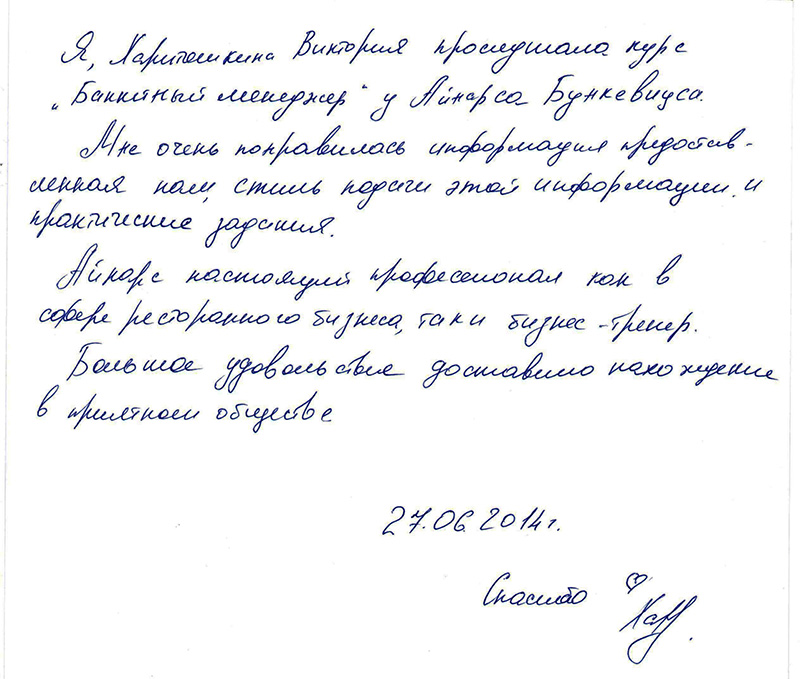 Я, Харитошкина Виктория прослушала курс
„Банкетный менеджер" у Айнарса Бункевицса.
Мне очень понравилась информация предостав-
ленная нам, стиль подачи этой информации и
практические задания.
Айнарс настоящий професеионал как в
сфере ресторанного бизнеса, так и бизнес-тренер.
Большое удовольствие доставило нахождение
в приятном обществе
27.06.2014г.
Спасибо